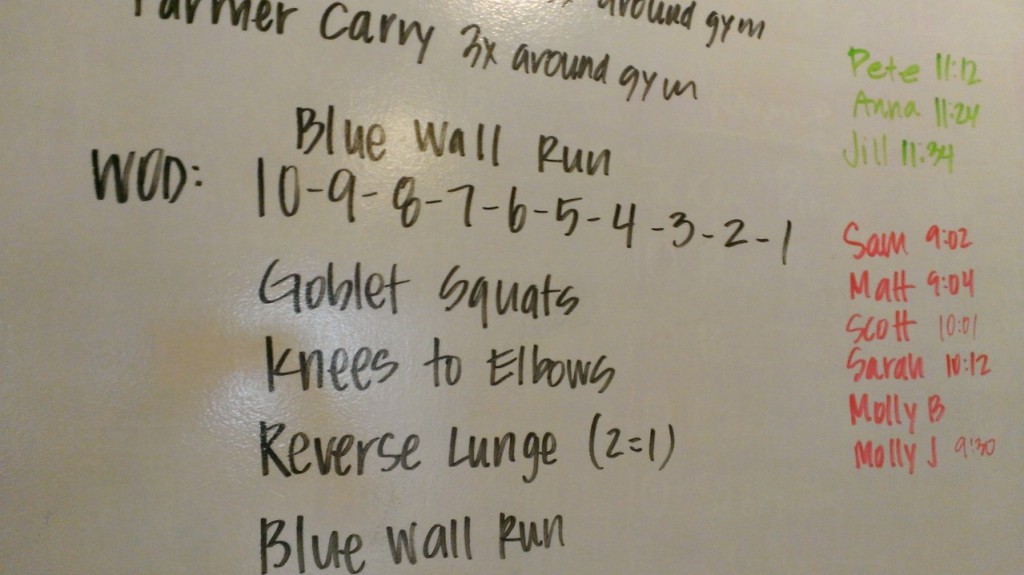 around gym
Farmer Carry 3x around gym
Blue Wall Run
WOD: 10-9-8-7-6-5-4-3-2-1
Goblet Squats
Knees to Elbows
Reverse Lunge (2=1)
Blue Wall Run
Pete 11:12
Anna 11:24
Jill 11:34
Sam 9:02
Matt 9:04
Scott 10:01
Sarah 10:12
Molly B
Molly J 9:30